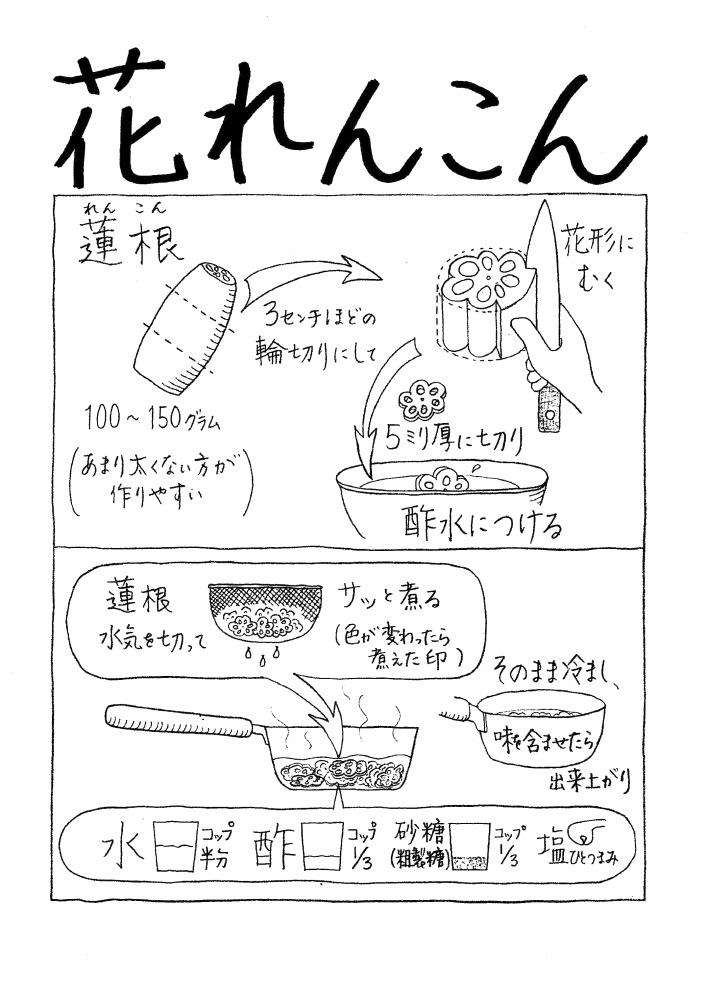 花れんこん
れん こん
蓮根
3センチほどの
輪切りにして
花形に
むく
100～150グラム
(あまり太くない方が
作りやすい)
5ミリ厚に切り
酢水につける
蓮根
水気を切って
サッと煮る
(色が変わったら
煮えた印)
そのまま冷まし、
味を含ませたら
出来上がり
水 コップ
半分
酢 コップ
1/3
砂糖
(粗製糖)
コップ
1/3
塩 ひとつまみ